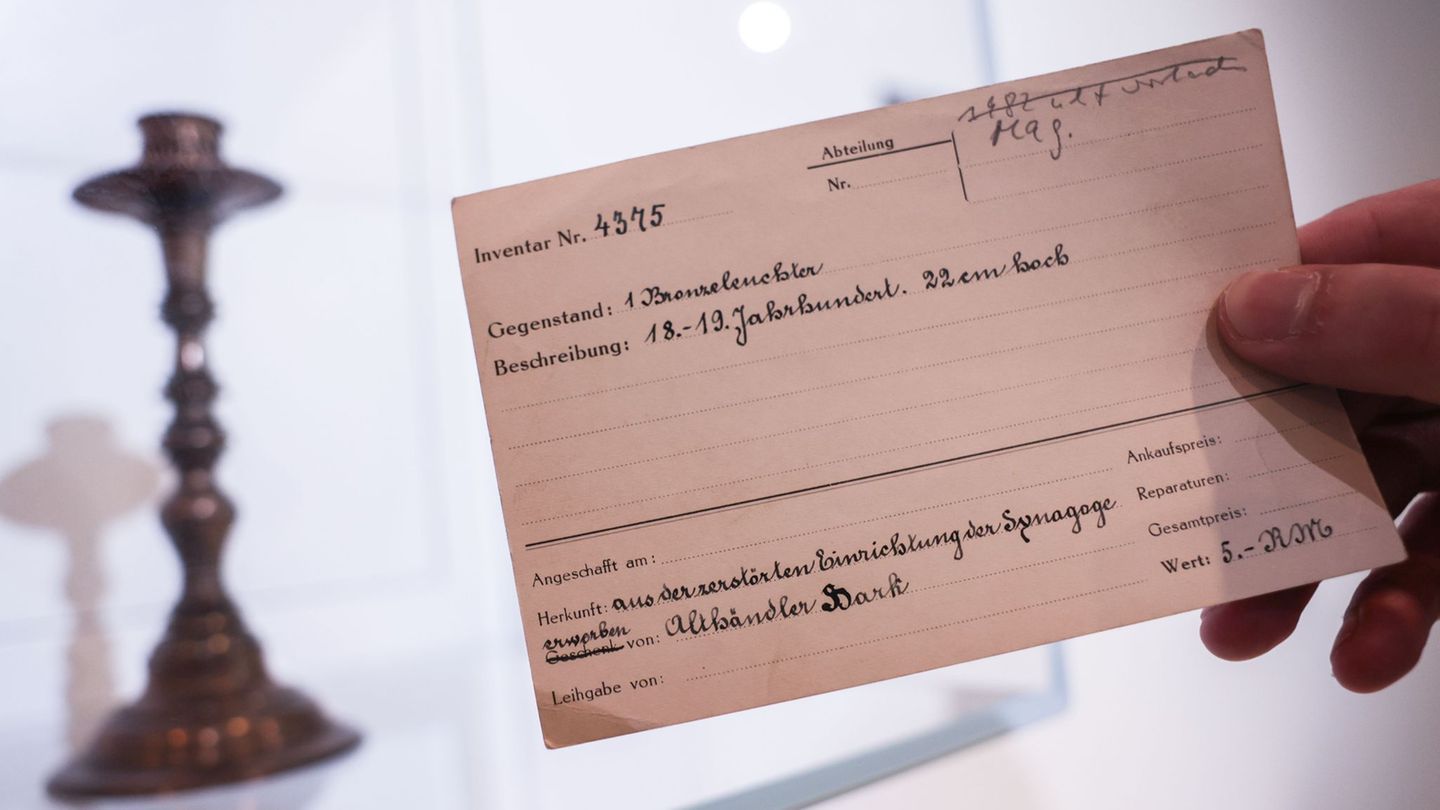 Abteilung
Nr.
Mag.
Inventar Nr. 4375
Gegenstand: 1 Bronzeleuchter
Beschreibung: 18.-19. Jahrhundert. 22 cm hoch
Angeschafft am:
Herkunft: aus der zerstörten Einrichtung der Synagoge
erworben
Geschenk von: Althändler Dark
Leihgabe von:
Ankaufspreis:
Reparaturen:
Gesamtpreis:
Wert: 5.- RM